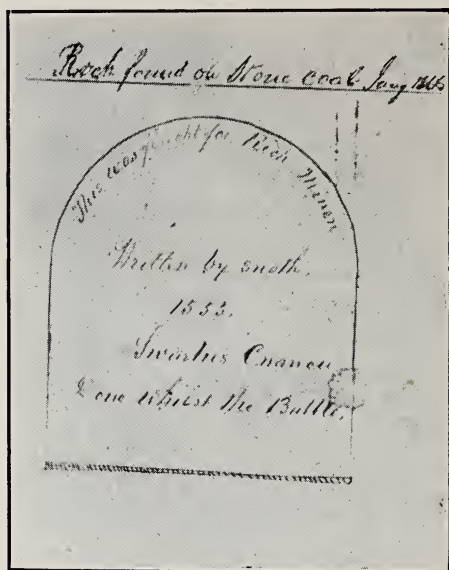 Rock found on Stone coal Jany
This was fought for Rich Minen
Written by snath.
1553.
Cnanou
Done whilst the Battle.